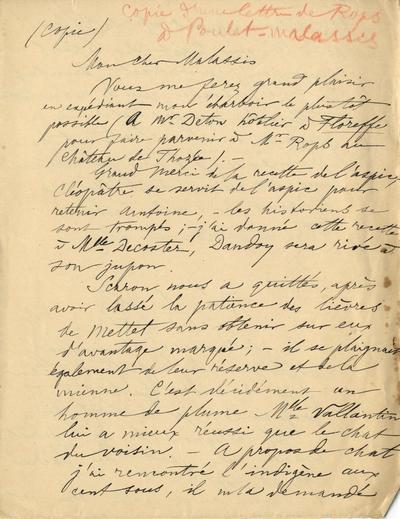 Copie d'une lettre de Rops
à Poulet-Malassis
(Copie)
Mon cher Malassis
Vous me ferez grand plaisir
en expédiant mon charbon le plus tôt
possible (A Mr. Deton hôtelier à Floreffe
pour faire parvenir à Mr Rops au
Château de Thozée). —
Grand merci de la recette de l'aspic,
Cléopâtre se servit de l'aspic pour
retenir Antoine, — les historiens se
sont trompés; — j'ai donné cette recette
à Mlle Decoster, Dandoy sera rivé à
son jupon.
nous a quittés, après
avoir lassé la patience des lièvres
de Mettet sans obtenir sur eux
d'avantage marqué; — il se plaignait
également de leur réserve et de la
mienne. C'est décidément un
homme de plume. Mlle Vallantin
lui a mieux réussi que le chat
du voisin. — A propos de chat
j'ai rencontré l'indigène aux
cent sous, il m'a demandé